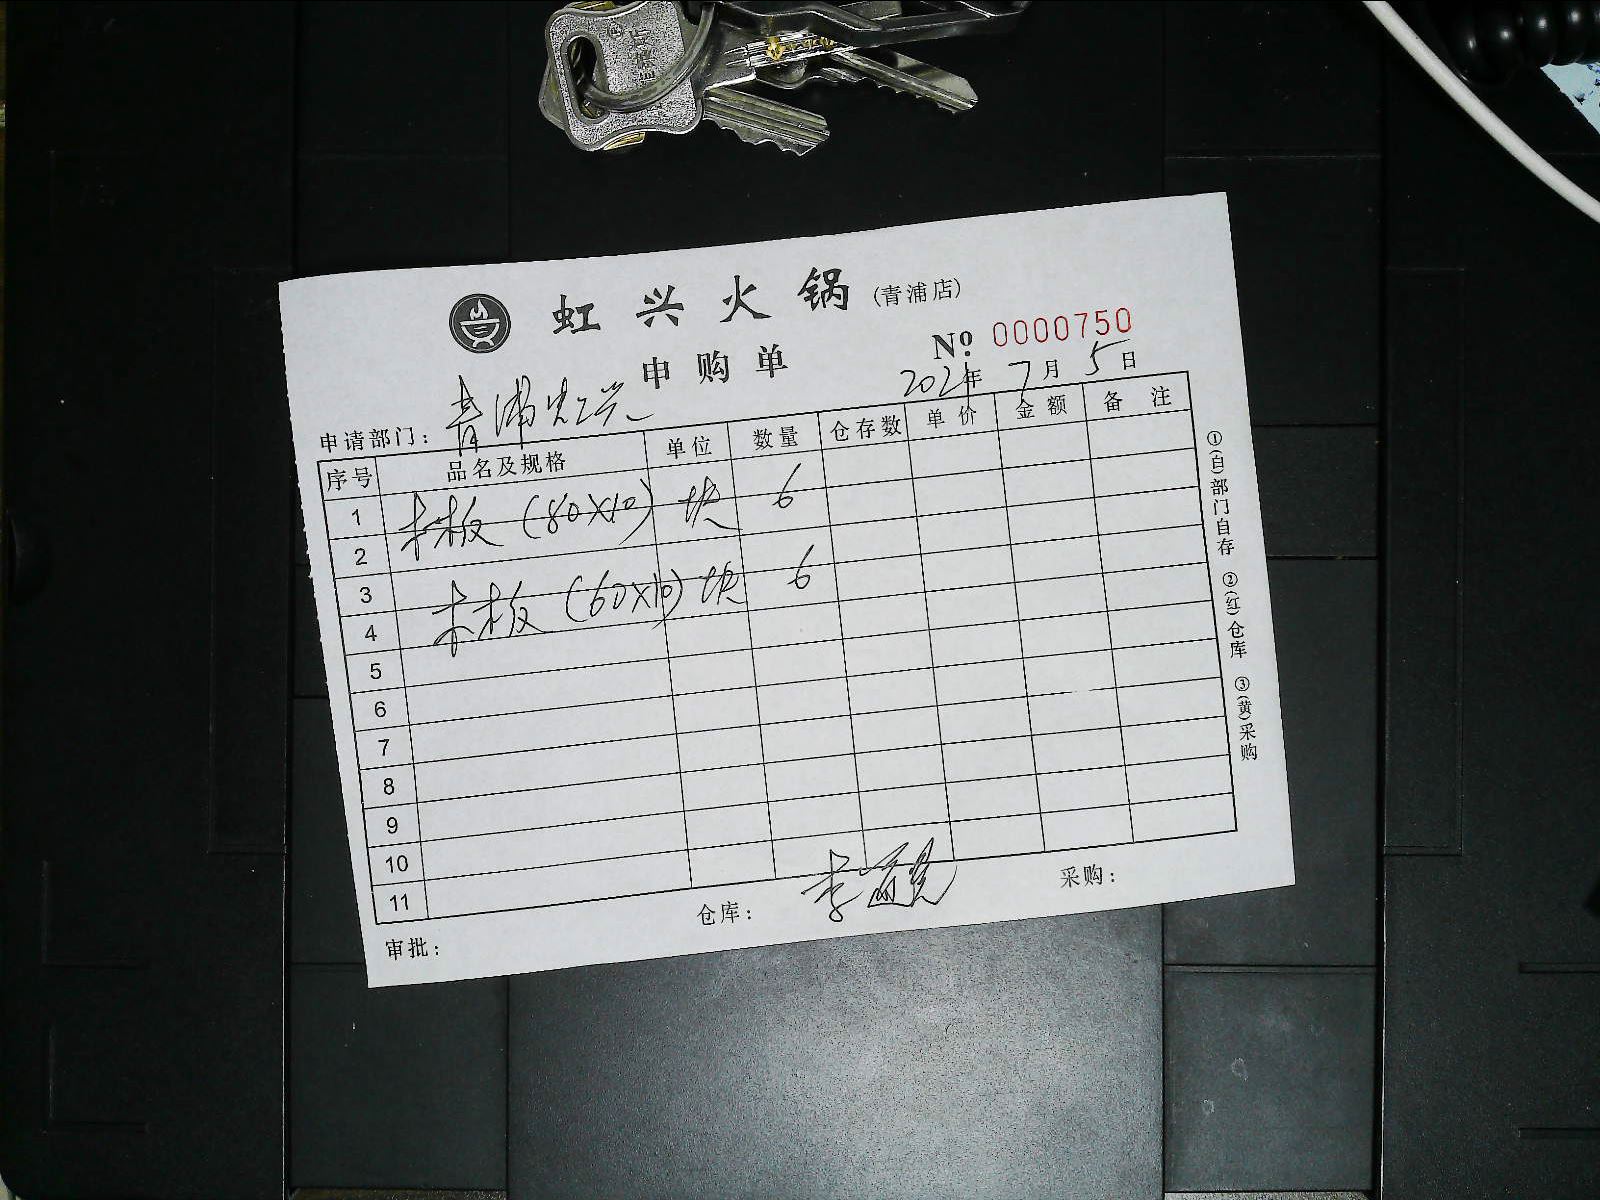 虹兴火锅(青浦店)
申购单
№ 0000750
2021年 7月 5日
申请部门: 青浦虹兴
序号 品名及规格 单位 数量 仓存数 单价 金额 备注
1 木板 (80×10) 块 6
2
3 木板 (60×10) 块 6
4
5
6
7
8
9
10
11
审批: 仓库: 李 采购:
①(白)部门自存 ②(红)仓库 ③(黄)采购